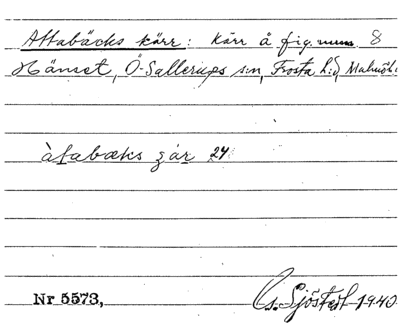 Attabäcks kärr: Kärr å fig. num 8
Hänset, Ö-Sallerups sn, Frosta h:d, Malmöh.
àtabæks ʒár 24
Nr 5573,
G. Sjöstedt 1940